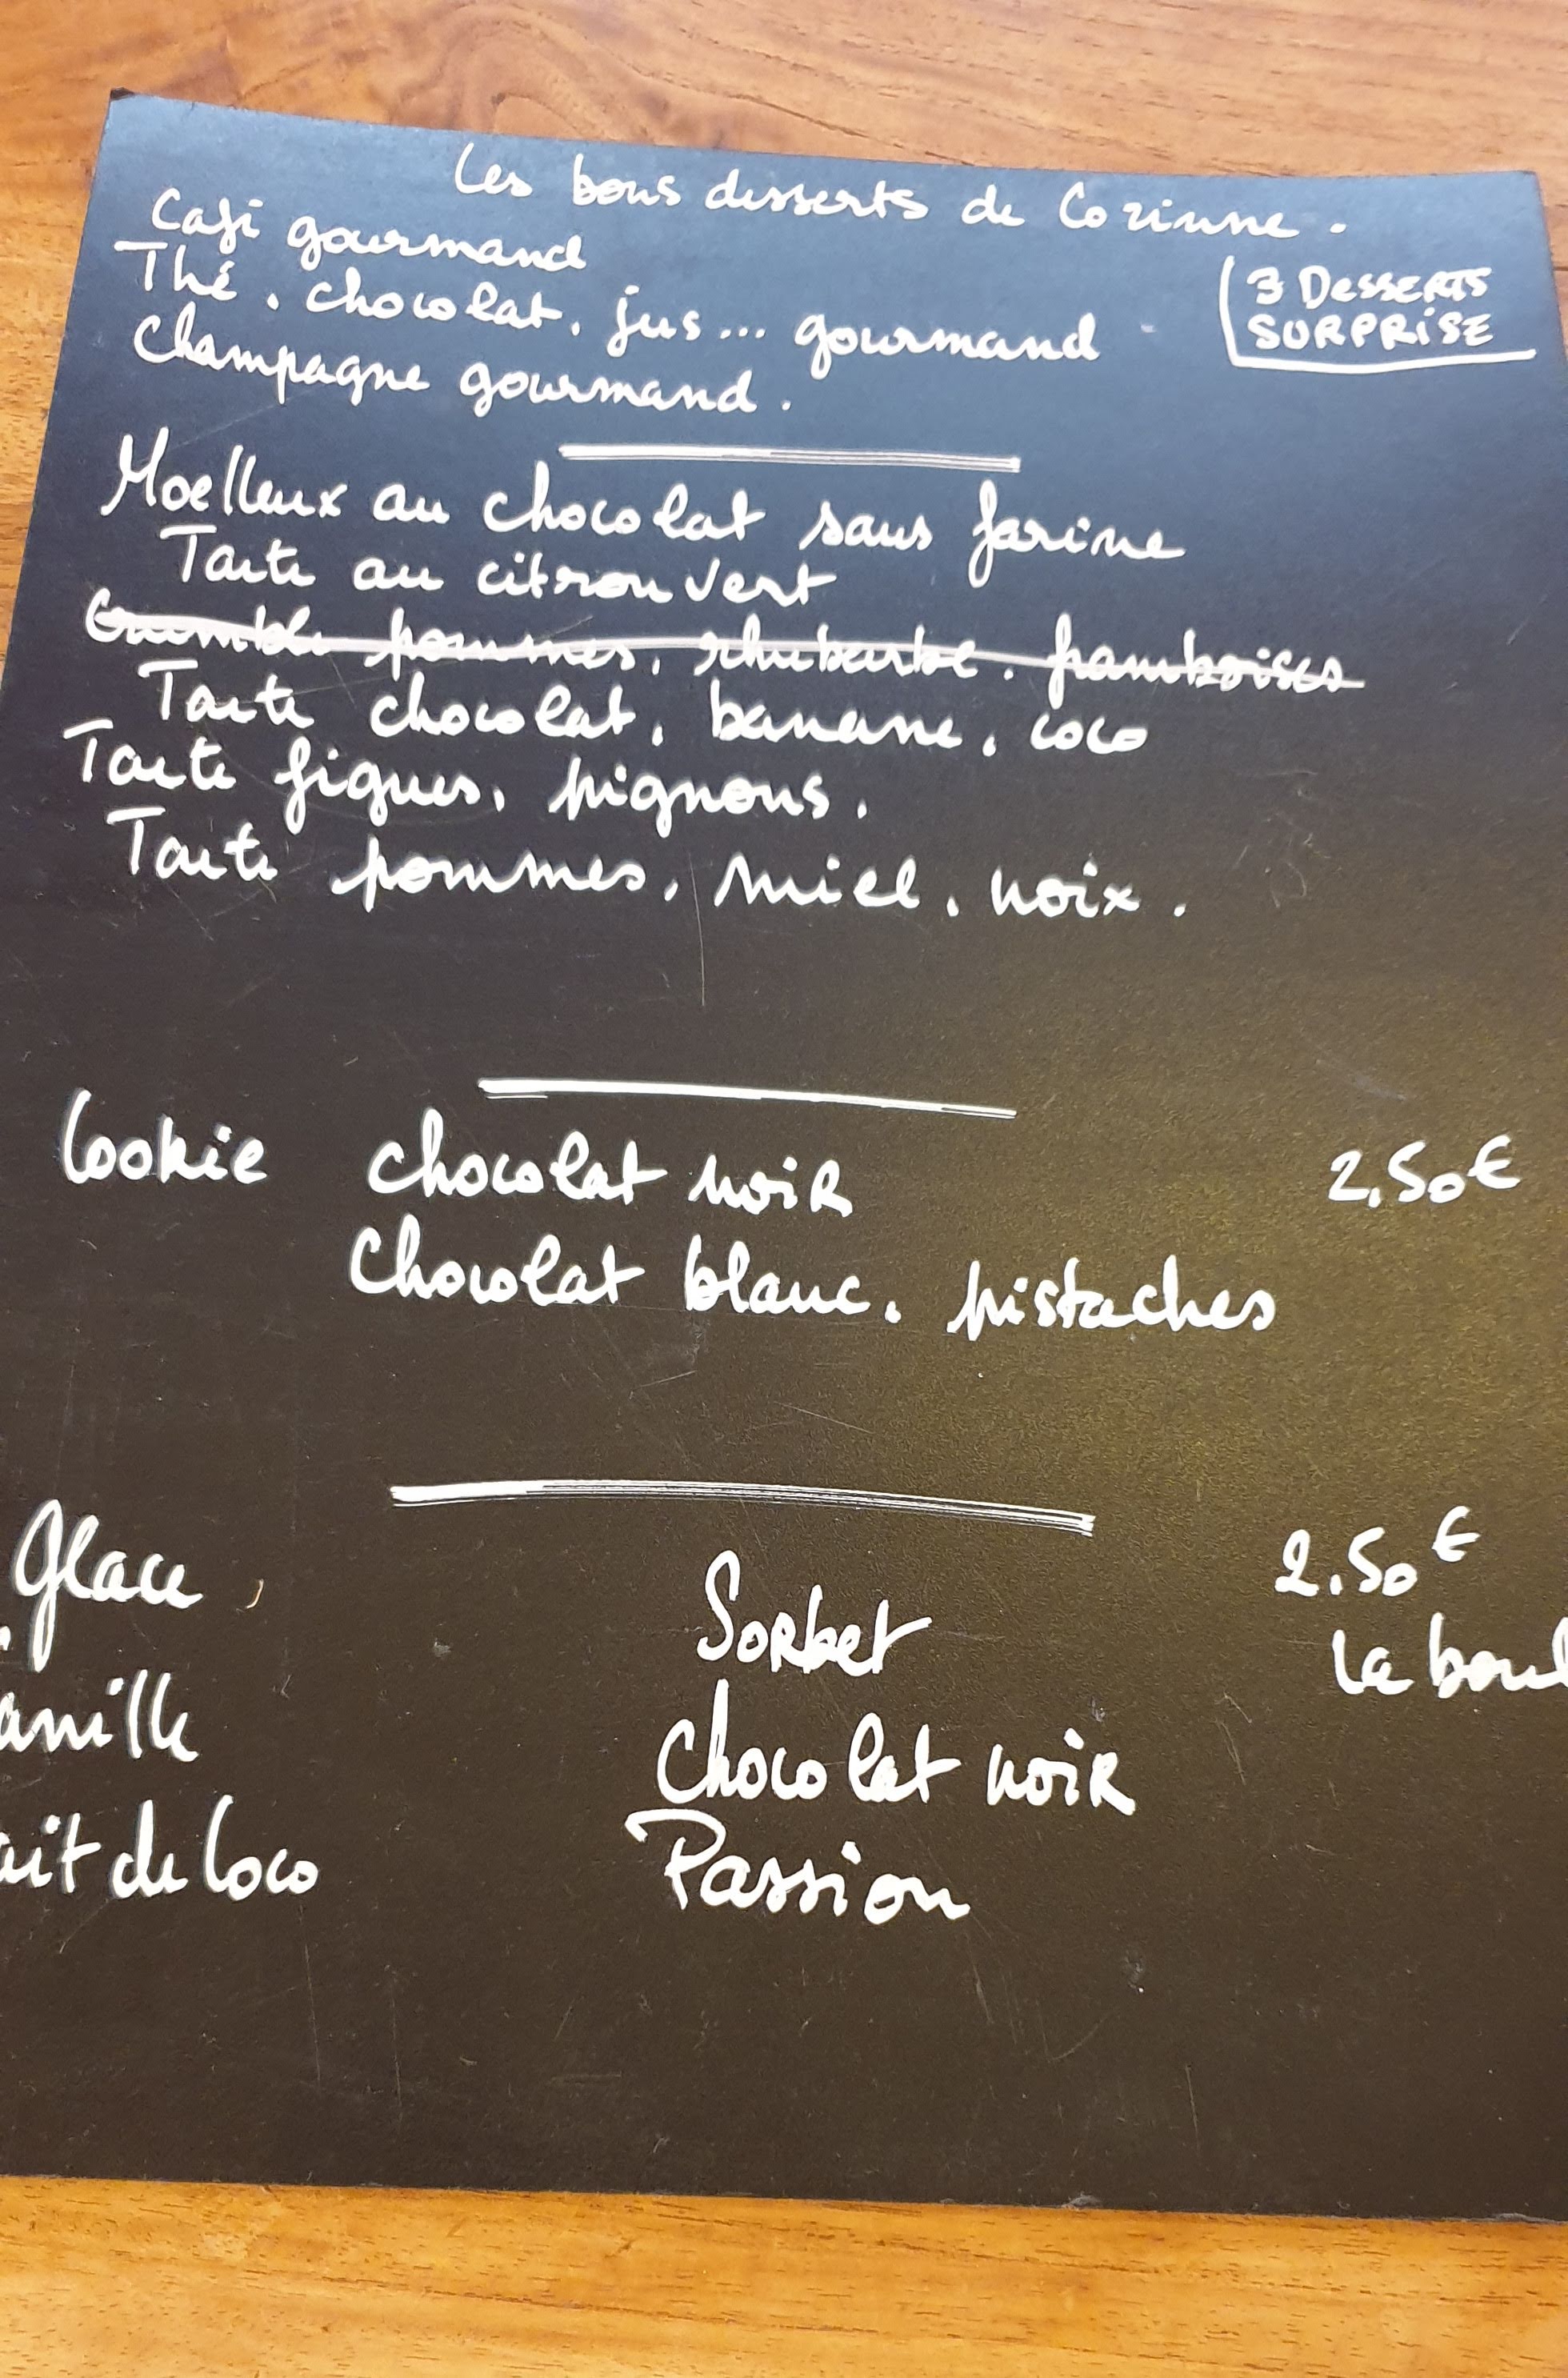 Les bons desserts de Corinne.
Café gourmand
Thé, chocolat, jus... gourmand
3 DESSERTS
SURPRISE
Champagne gourmand.
Moelleux au chocolat sans farine
Tarte au citron vert
Crumble pommes, rhubarbe, framboises
Tarte chocolat, banane, coco
Tarte figues, pignons.
Tarte pommes, miel, noix.
Cookie chocolat noir 2,50€
Chocolat blanc, pistaches
Glace Sorbet 2,50€
la boul
anille Chocolat noir
ait de Coco Passion